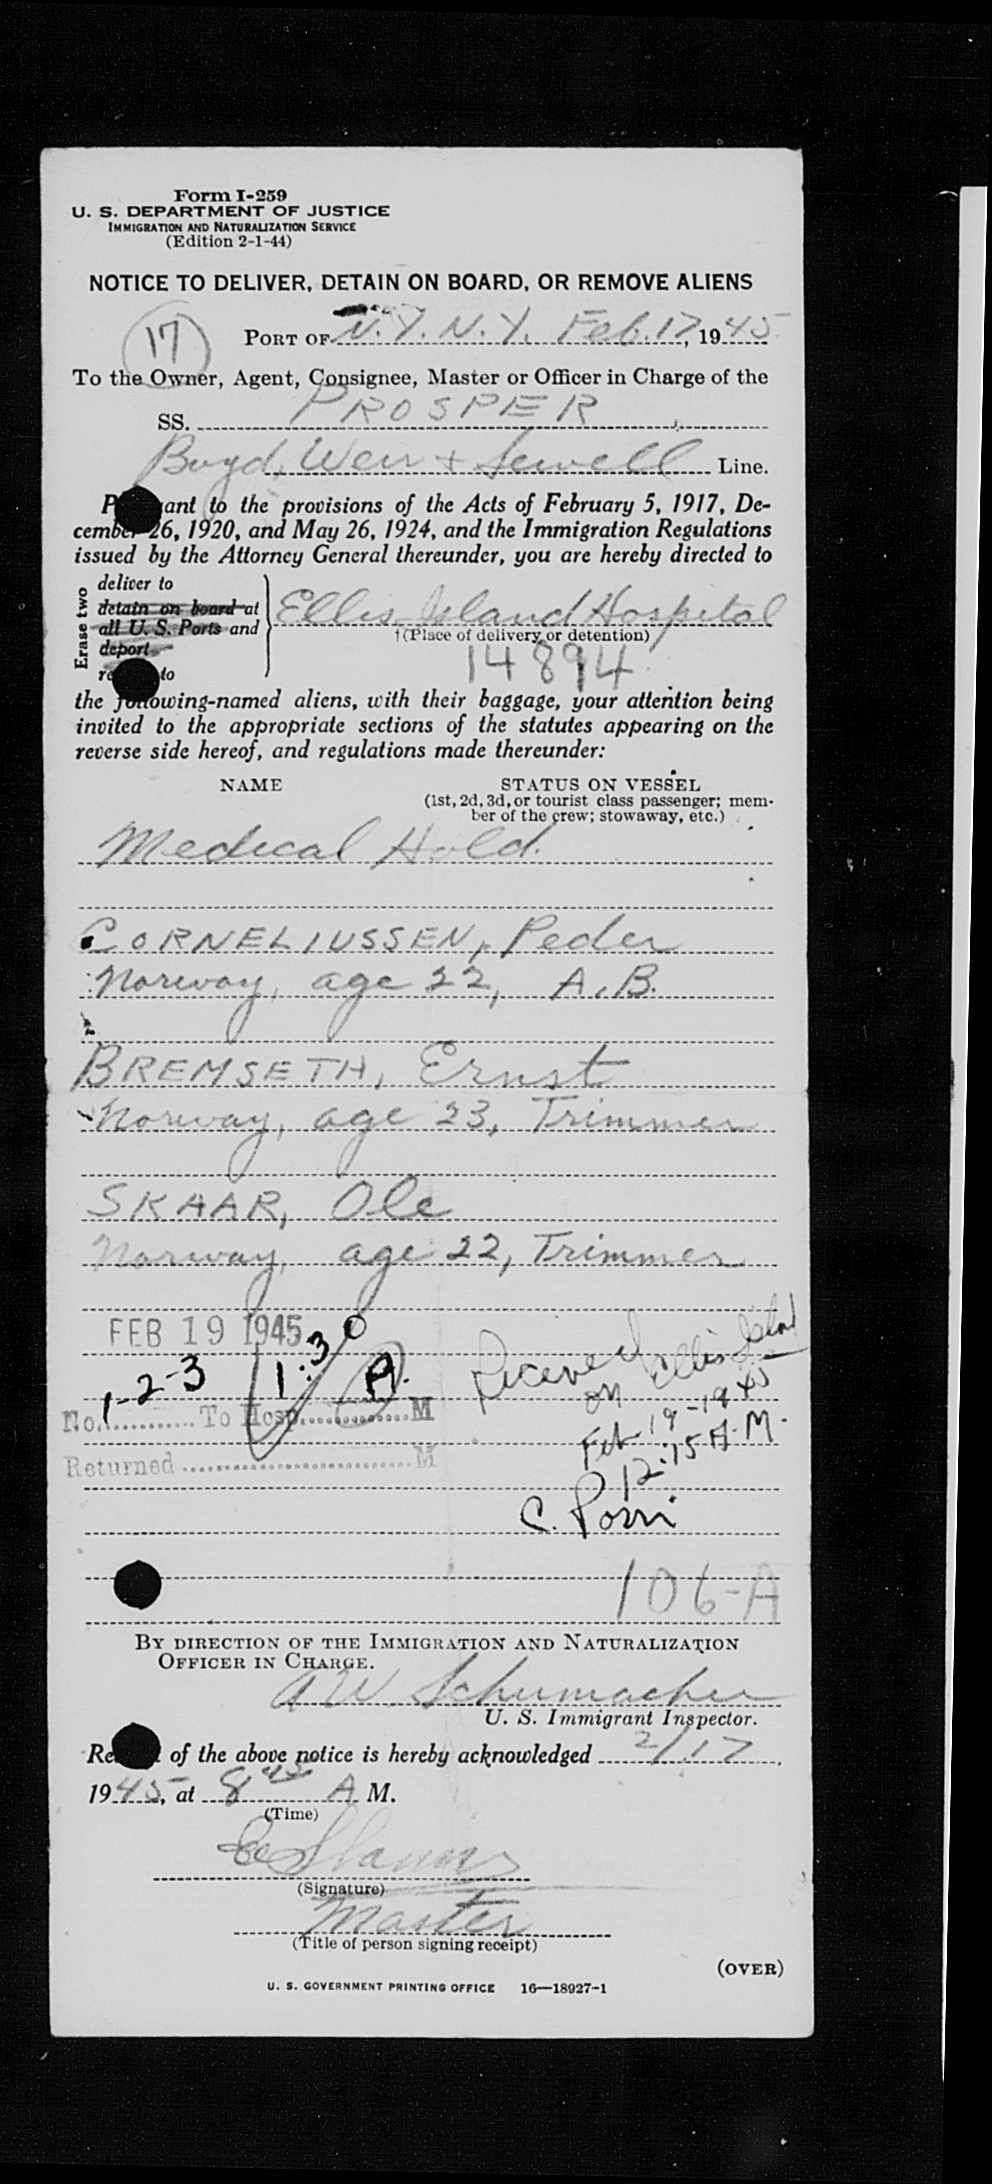 Form I-259
U. S. DEPARTMENT OF JUSTICE
IMMIGRATION AND NATURALIZATION SERVICE
(Edition 2-1-44)
NOTICE TO DELIVER, DETAIN ON BOARD, OR REMOVE ALIENS
17
PORT OF N.Y. N.Y. Feb. 17, 1945
To the Owner, Agent, Consignee, Master or Officer in Charge of the
SS. PROSPER
Boyd, Weir + Sewell Line.
P ant to the provisions of the Acts of February 5, 1917, De-
cember 26, 1920, and May 26, 1924, and the Immigration Regulations
issued by the Attorney General thereunder, you are hereby directed to
Erase two
deliver to
detain on board at
all U. S. Ports and
deport
re to
Ellis Island Hospital
†(Place of delivery or detention)
14894
the following-named aliens, with their baggage, your attention being
invited to the appropriate sections of the statutes appearing on the
reverse side hereof, and regulations made thereunder:
NAME
STATUS ON VESSEL
(1st, 2d, 3d, or tourist class passenger; mem-
ber of the crew; stowaway, etc.)
Medical Hold.
CORNELIUSSEN, Peder
Norway, age 22, A.B.
BREMSETH, Ernst
Norway, age 23, Trimmer
SKAAR, Ole
Norway, age 22, Trimmer
FEB 19 1945
No. 1-2-3 To Hosp. 1:30 A. M
Returned M
Received Ellis Island
on
Feb-19-1945
12:15 A.M.
C.
106-A
BY DIRECTION OF THE IMMIGRATION AND NATURALIZATION
OFFICER IN CHARGE.
A W Schumacher
U. S. Immigrant Inspector.
Re t of the above notice is hereby acknowledged 2/17,
1945, at 8 45 A M.
(Time)
(Signature)
Master
(Title of person signing receipt)
(OVER)
U. S. GOVERNMENT PRINTING OFFICE 16—18927-1